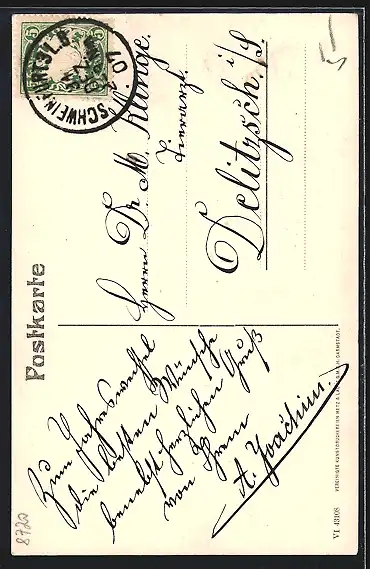 Postkarte
Herrn Dr. M. Klinge.
Tierarzt.
Delitzsch i/S.
Zum Jahreswechsel
die besten Wünsche
benebst herzlichen Gruß
von Ihrem
A. Joachim.
VI 43108
8720